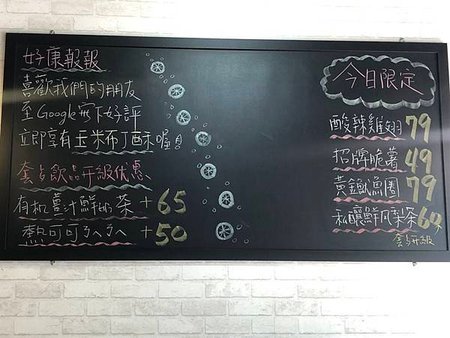 好康報報
喜歡我們的朋友
至Google寫下好評
立即享有玉米布丁酥喔
套点飲品升級优惠
有机薑汁鮮奶茶+65
熱可可ㄋㄟㄋㄟ+50
今日限定
酸辣雞翅79
招牌脆薯49
黃金魷魚圈79
私釀鮮鳳梨茶64
套餐升級